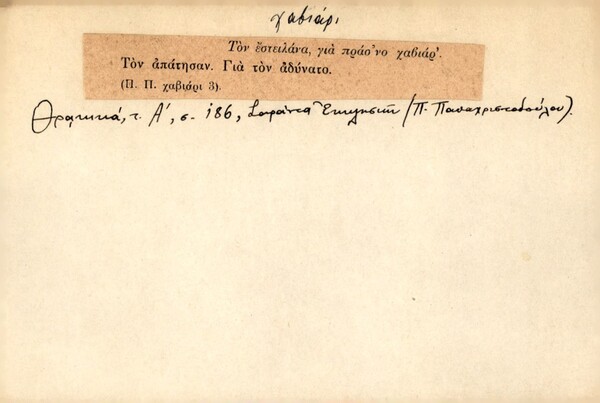 χαβιάρι
Τὸν ἔστειλάνα, γιὰ πράσ'νο χαβιάρ'.
Τὸν ἀπάτησαν. Γιὰ τὸν ἀδύνατο.
(Π. Π. χαβιάρι 3).
Θρακικά, τ. Α', σ. 186, Σαράντα Ἐκκλησιῶν (Π. Παπαχριστοδούλου).